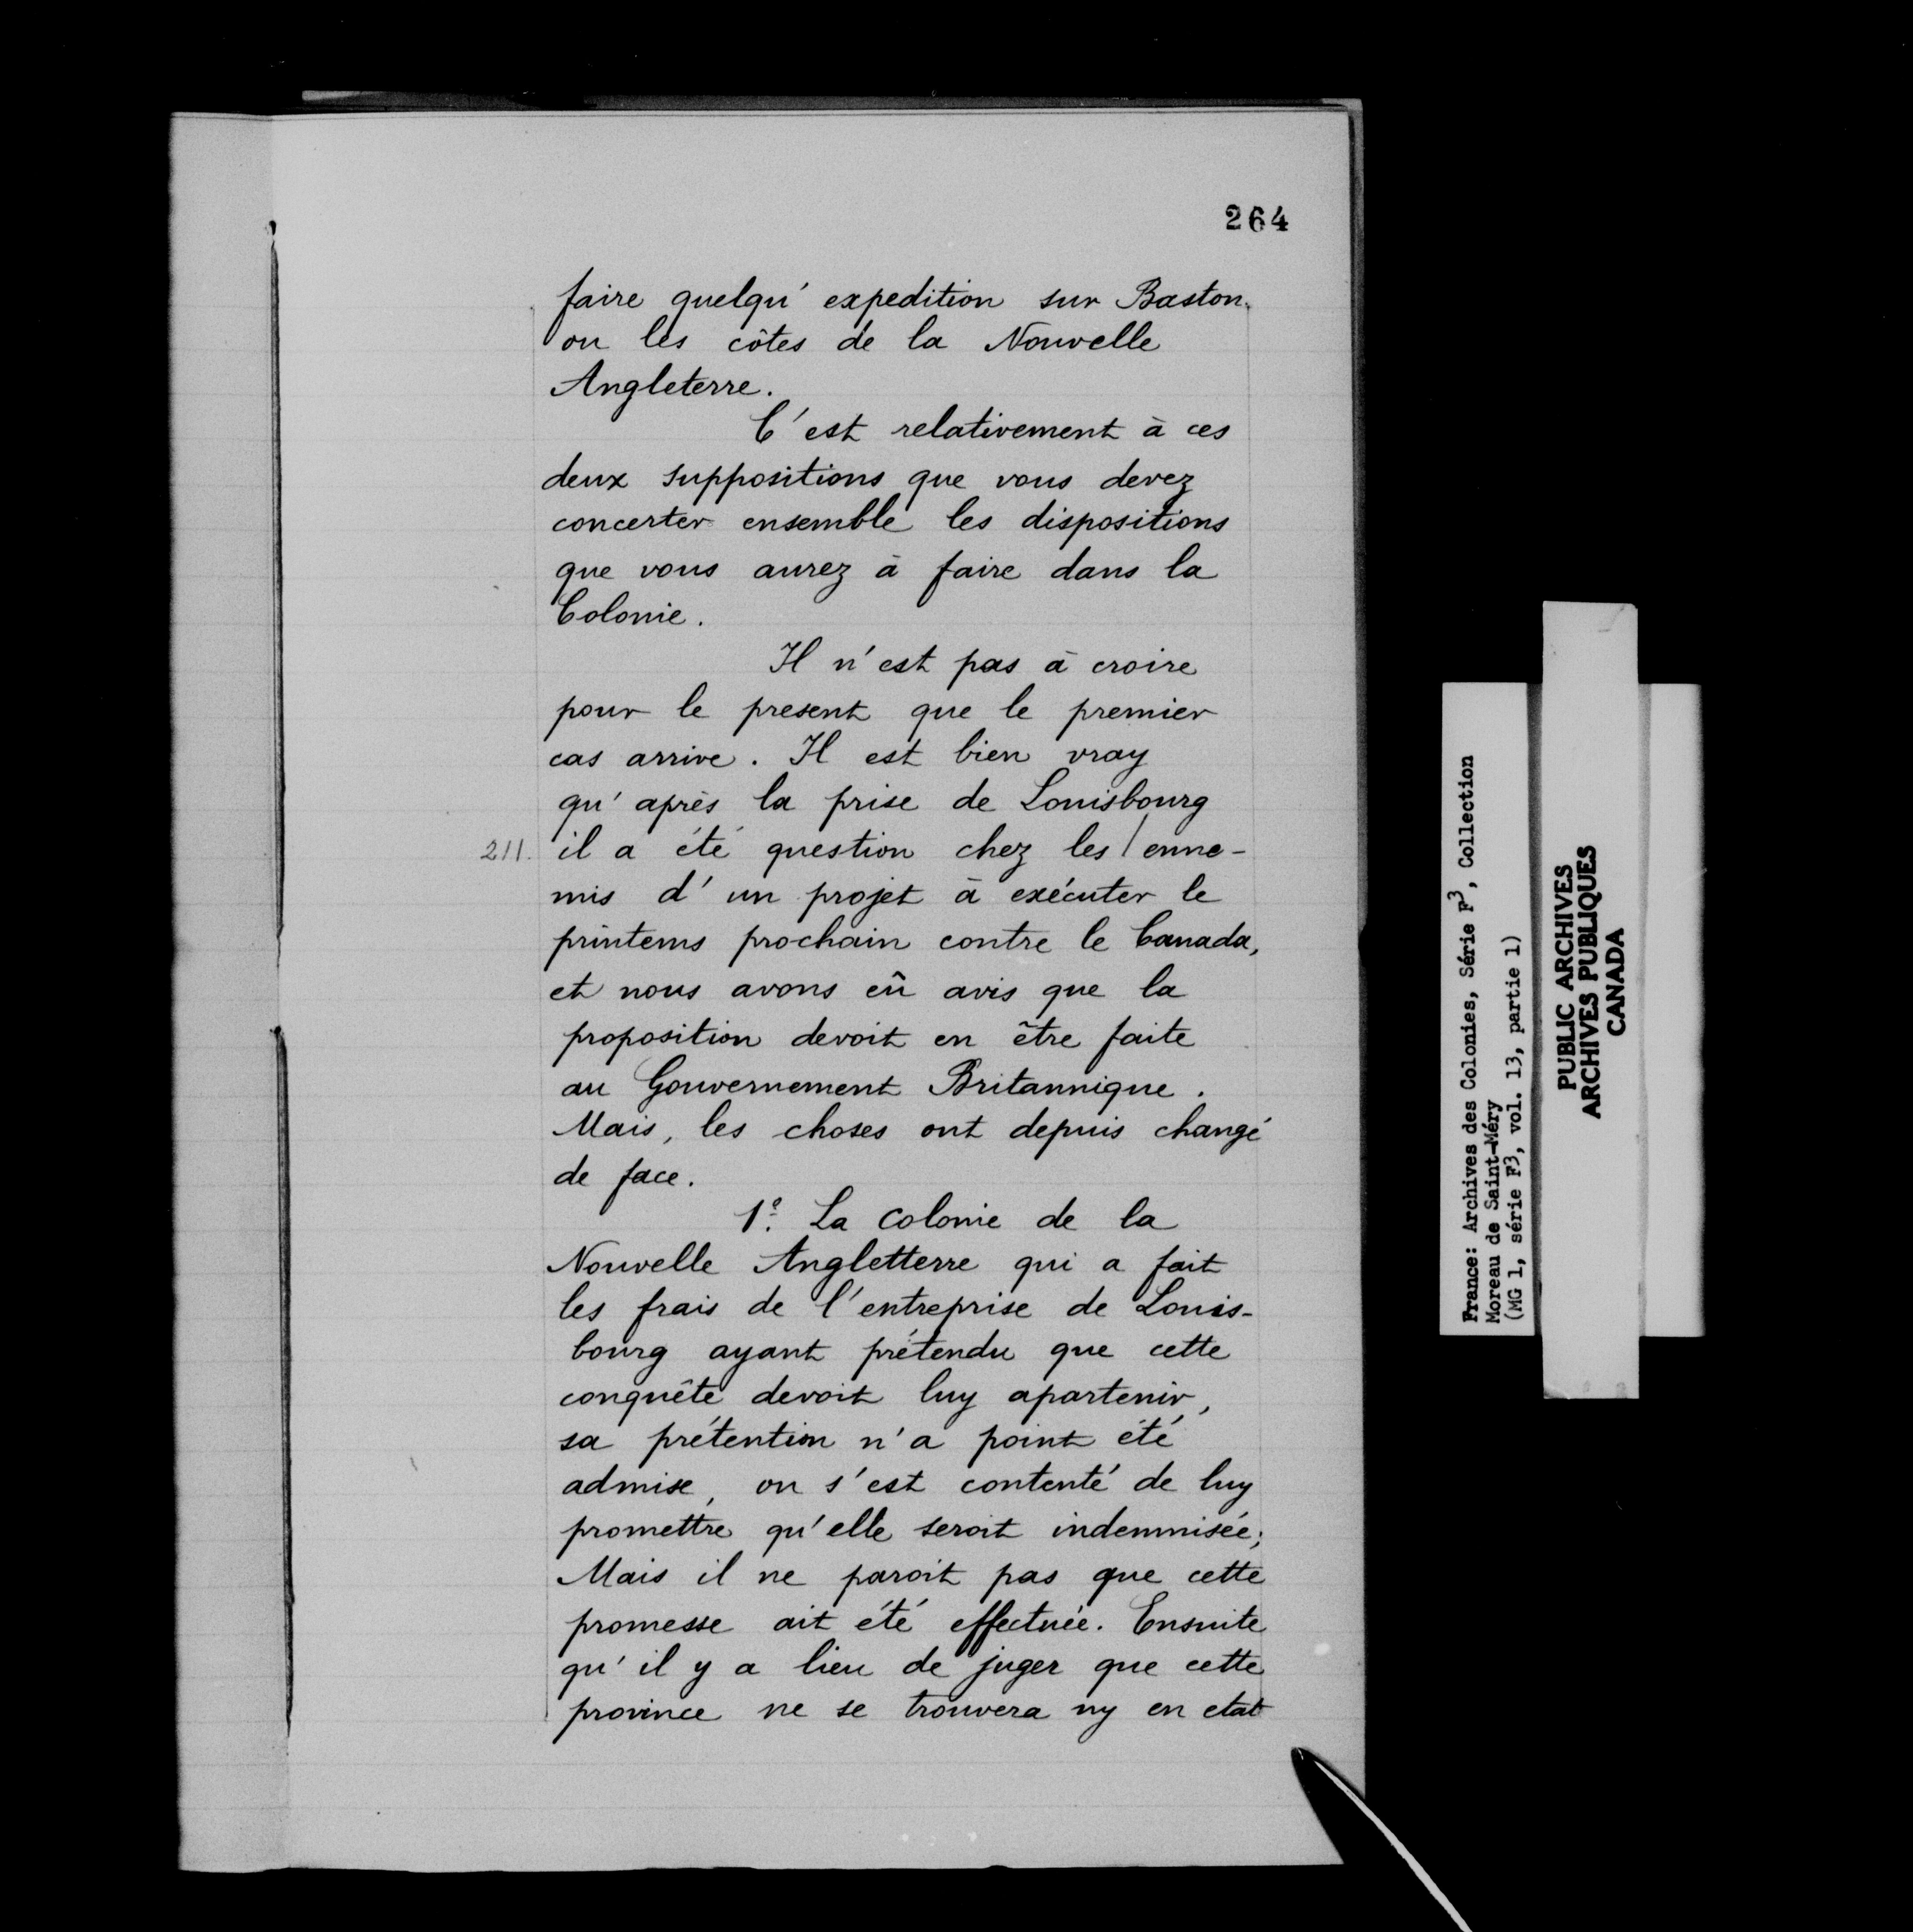 264
faire quelqu' expedition sur Baston
ou les côtes de la Nouvelle
Angleterre.
C'est relativement à ces
deux suppositions que vous devez
concerter ensemble les dispositions
que vous aurez à faire dans la
Colonie.
Il n'est pas à croire
pour le present que le premier
cas arrive. Il est bien vray
qu'après la prise de Louisbourg
211. il a été question chez les / enne-
mis d'un projet à exécuter le
printems prochain contre le Canada,
et nous avons eû avis que la
proposition devoit en être faite
au Gouvernement Britannique.
Mais, les choses ont depuis changé
de face.
1º. La Colonie de la
Nouvelle Angletterre qui a fait
les frais de l'entreprise de Louis-
bourg ayant prétendu que cette
conquête devoit luy apartenir,
sa prétention n'a point été
admise, on s'est contenté de luy
promettre qu'elle seroit indemnisée;
Mais il ne paroit pas que cette
promesse ait été effectuée. Ensuite
qu'il y a lieu de juger que cette
province ne se trouvera ny en etat
France: Archives des Colonies, Série F3, Collection
Moreau de Saint-Méry
(MG 1, série F3, vol. 13, partie 1)
PUBLIC ARCHIVES
ARCHIVES PUBLIQUES
CANADA